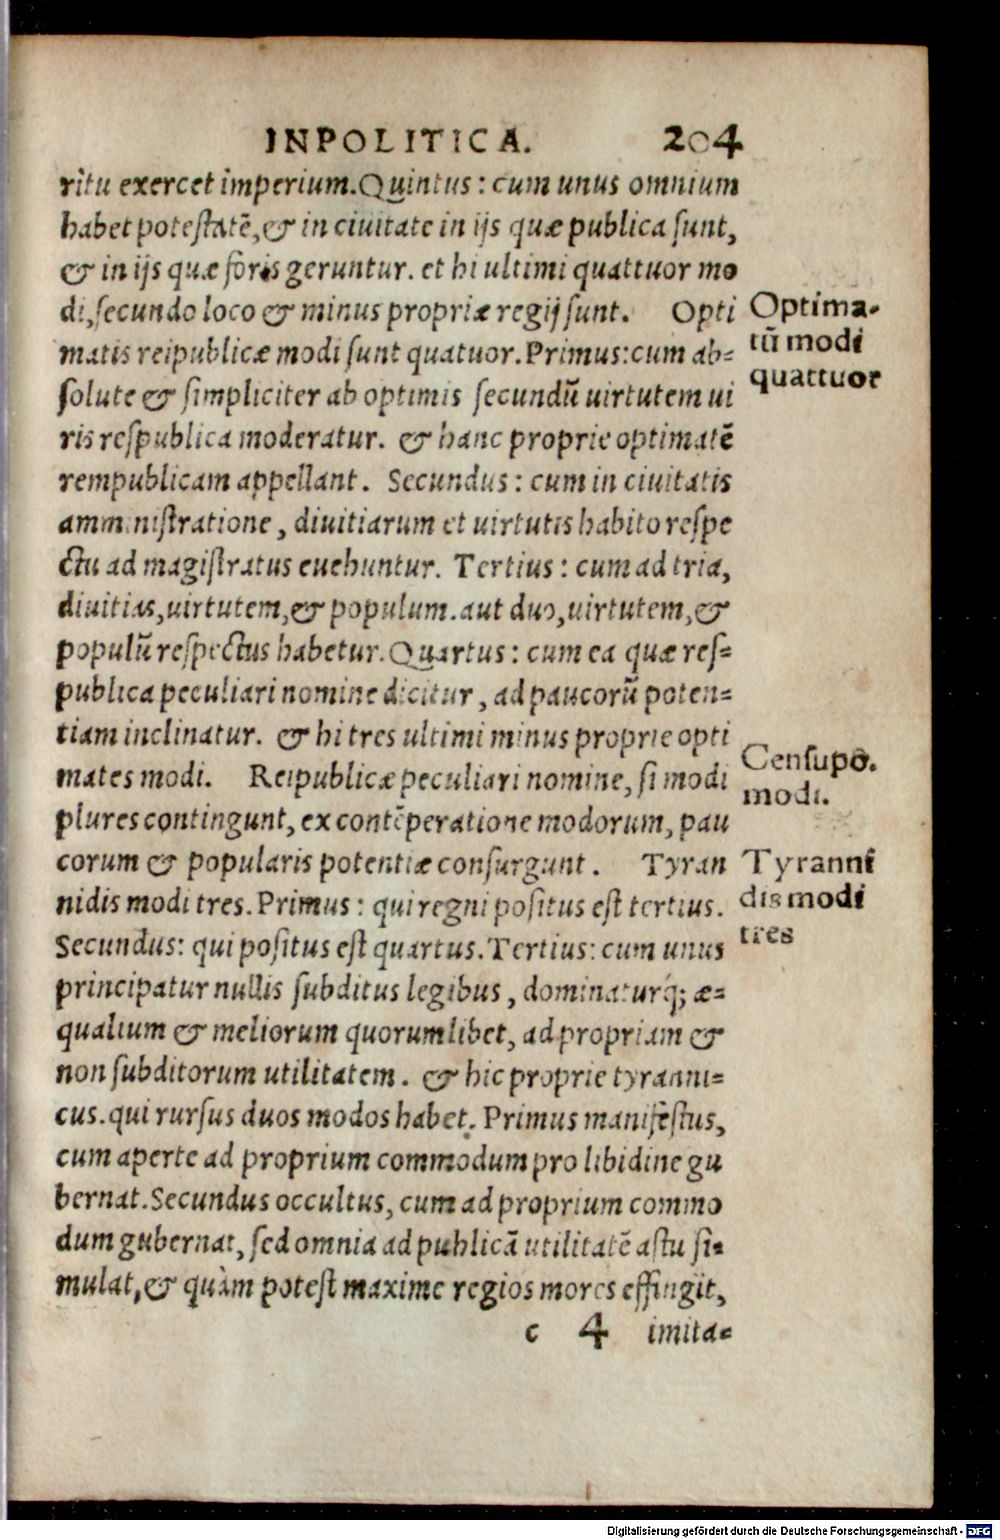 INPOLITICA. 204
ritu exercet imperium. Quintus: cum unus omnium
habet potestatē, & in ciuitate in ijs quæ publica sunt,
& in ijs quæ foris geruntur. et hi ultimi quattuor mo
di, secundo loco & minus propriæ regij sunt. Opti
matis reipublicæ modi sunt quatuor. Primus: cum ab-
solute & simpliciter ab optimis secundū uirtutem ui
ris respublica moderatur. & hanc proprie optimatē
rempublicam appellant. Secundus: cum in ciuitatis
amministratione, diuitiarum et uirtutis habito respe
ctu ad magistratus euehuntur. Tertius: cum ad tria,
diuitias, uirtutem, & populum. aut duo, uirtutem, &
populū respectus habetur. Quartus: cum ea quæ res-
publica peculiari nomine dicitur, ad paucorū poten-
tiam inclinatur. & hi tres ultimi minus proprie opti
mates modi. Reipublicæ peculiari nomine, si modi
plures contingunt, ex contēperatione modorum, pau
corum & popularis potentiæ consurgunt. Tyran
nidis modi tres. Primus: qui regni positus est tertius.
Secundus: qui positus est quartus. Tertius: cum unus
principatur nullis subditus legibus, dominaturq́; æ-
qualium & meliorum quorumlibet, ad propriam &
non subditorum utilitatem. & hic proprie tyranni-
cus. qui rursus duos modos habet. Primus manifestus,
cum aperte ad proprium commodum pro libidine gu
bernat. Secundus occultus, cum ad proprium commo
dum gubernat, sed omnia ad publicā utilitatē astu si-
mulat, & quàm potest maxime regios mores effingit,
c 4 imita-
Optima-
tū modi
quattuor
Censupō.
modi.
Tyranni
dis modi
tres
Digitalisierung gefördert durch die Deutsche Forschungsgemeinschaft - DFG